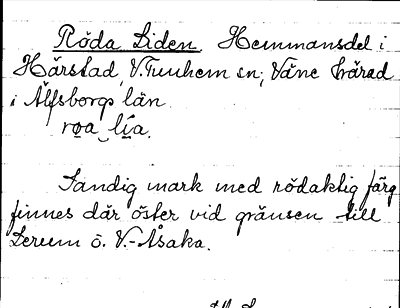 Röda Liden. Hemmansdel i
Hårstad, V. Tunhem sn; Väne härad
i Älfsborgs län.
roa lia.
Sandig mark med rödaktig färg
finnes där öster vid gränsen till
Lerum o. V.-Åsaka.